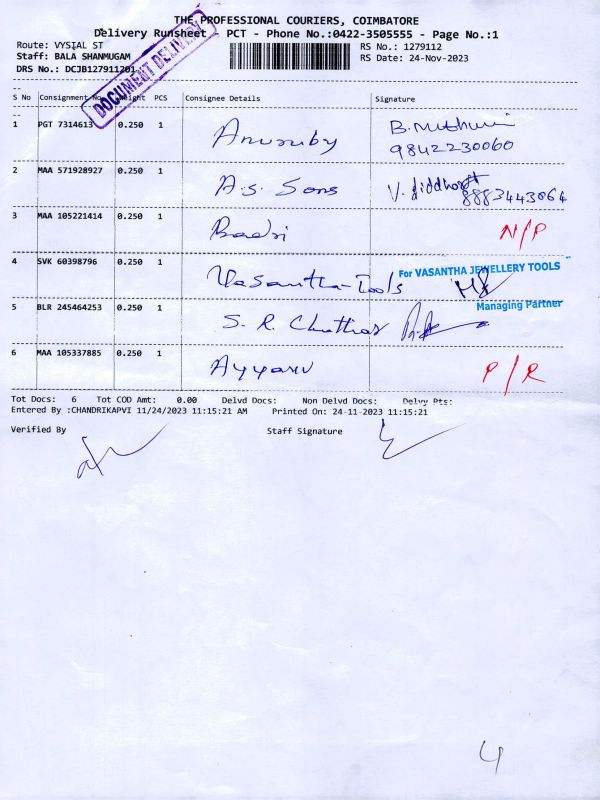 THE PROFESSIONAL COURIERS, COIMBATORE
Delivery Runsheet PCT - Phone No.:0422-3505555 - Page No.:1
Route: VYSIAL ST
RS No.: 1279112
Staff: BALA SHANMUGAM
RS Date: 24-Nov-2023
DRS No.: DCJB127911201
DOCUMENT DELIVERY
S No Consignment No Weight PCS Consignee Details Signature
1 PGT 7314613 0.250 1 Anuruby B. Muthu
9842230060
2 MAA 571928927 0.250 1 A.S. Sons V. Siddharth
8883443064
3 MAA 105221414 0.250 1 Badri N/P
4 SVK 60398796 0.250 1 Vasantha-Tools For VASANTHA JEWELLERY TOOLS
Managing Partner
5 BLR 245464253 0.250 1 S. R.
6 MAA 105337885 0.250 1 Ayyanu P/R
Tot Docs: 6 Tot COD Amt: 0.00 Delvd Docs: Non Delvd Docs: Delvy Pts:
Entered By :CHANDRIKAPVI 11/24/2023 11:15:21 AM Printed On: 24-11-2023 11:15:21
Verified By Staff Signature
4